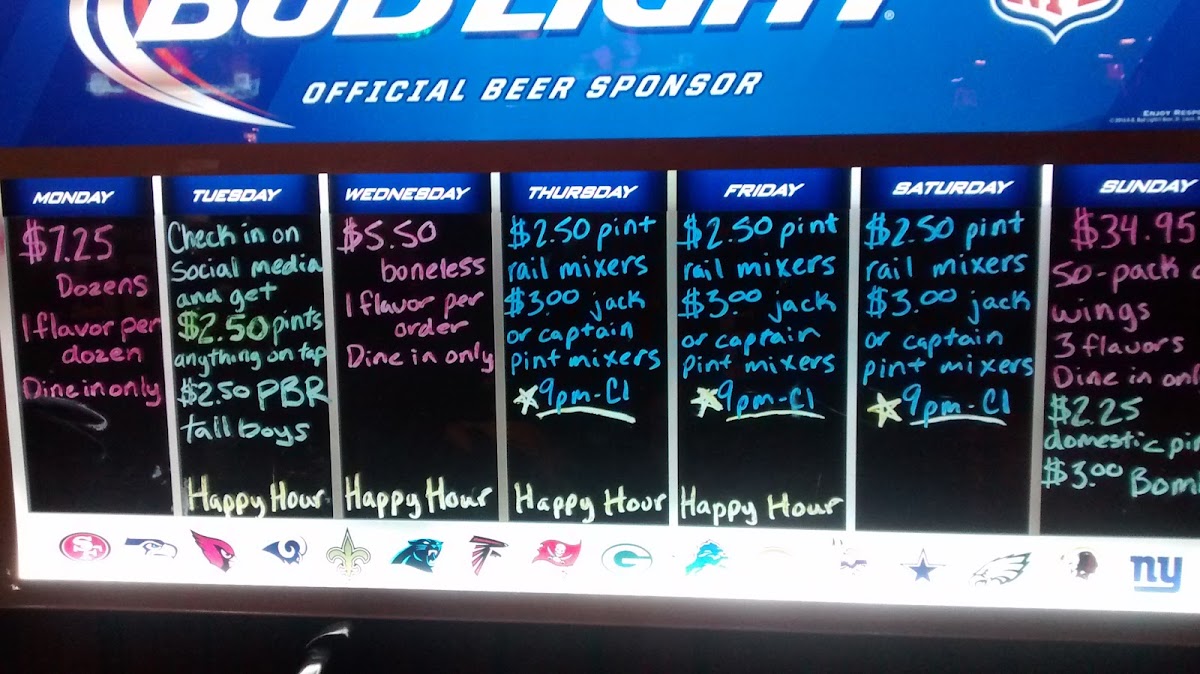 BUD LIGHT
OFFICIAL BEER SPONSOR
NFL
MONDAY
$7.25
Dozens
1 flavor per
dozen
Dine in only
TUESDAY
Check in on
Social media
and get
$2.50 pints
anything on tap
$2.50 PBR
tall boys
Happy Hour
WEDNESDAY
$5.50
boneless
1 flavor per
order
Dine in only
Happy Hour
THURSDAY
$2.50 pint
rail mixers
$3.00 jack
or captain
pint mixers
9pm-Cl
Happy Hour
FRIDAY
$2.50 pint
rail mixers
$3.00 jack
or captain
pint mixers
9pm-Cl
Happy Hour
SATURDAY
$2.50 pint
rail mixers
$3.00 jack
or captain
pint mixers
9pm-Cl
SUNDAY
$34.95
50-pack
wings
3 flavors
Dine in
$2.25
domestic
$3.00
SF
G
ny